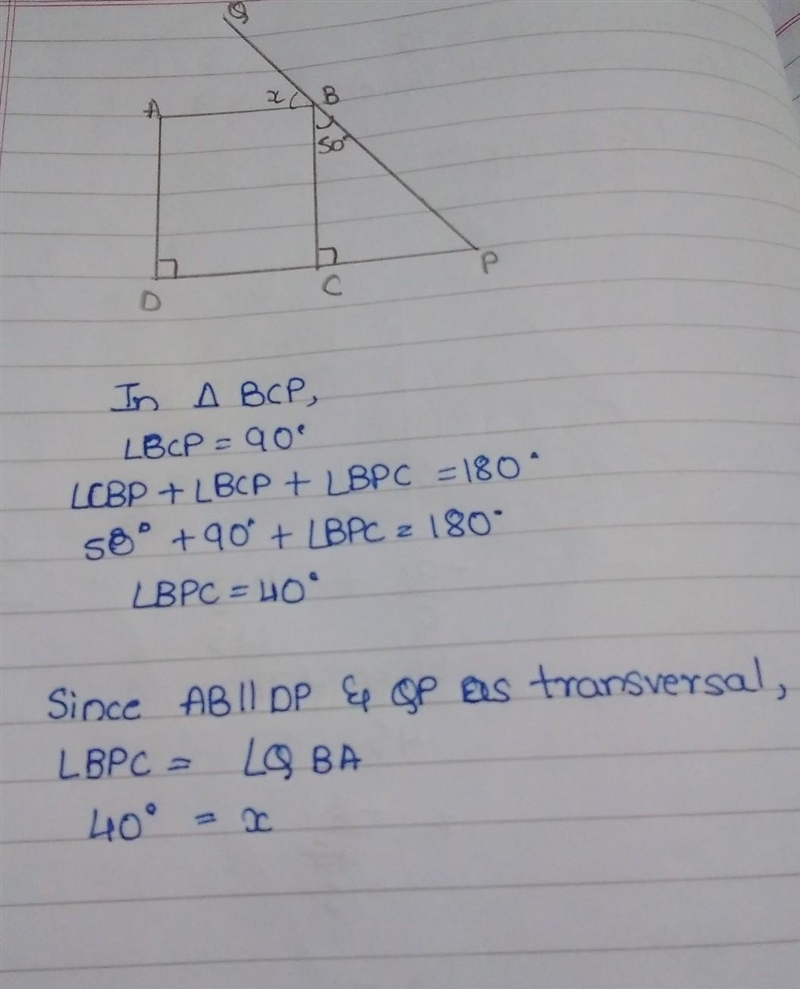 Q
A x B
50°
D C P
In Δ BCP,
∠BCP = 90°
∠CBP + ∠BCP + ∠BPC = 180°
50° + 90° + ∠BPC = 180°
∠BPC = 40°
Since AB || DP & QP as transversal,
∠BPC = ∠QBA
40° = x